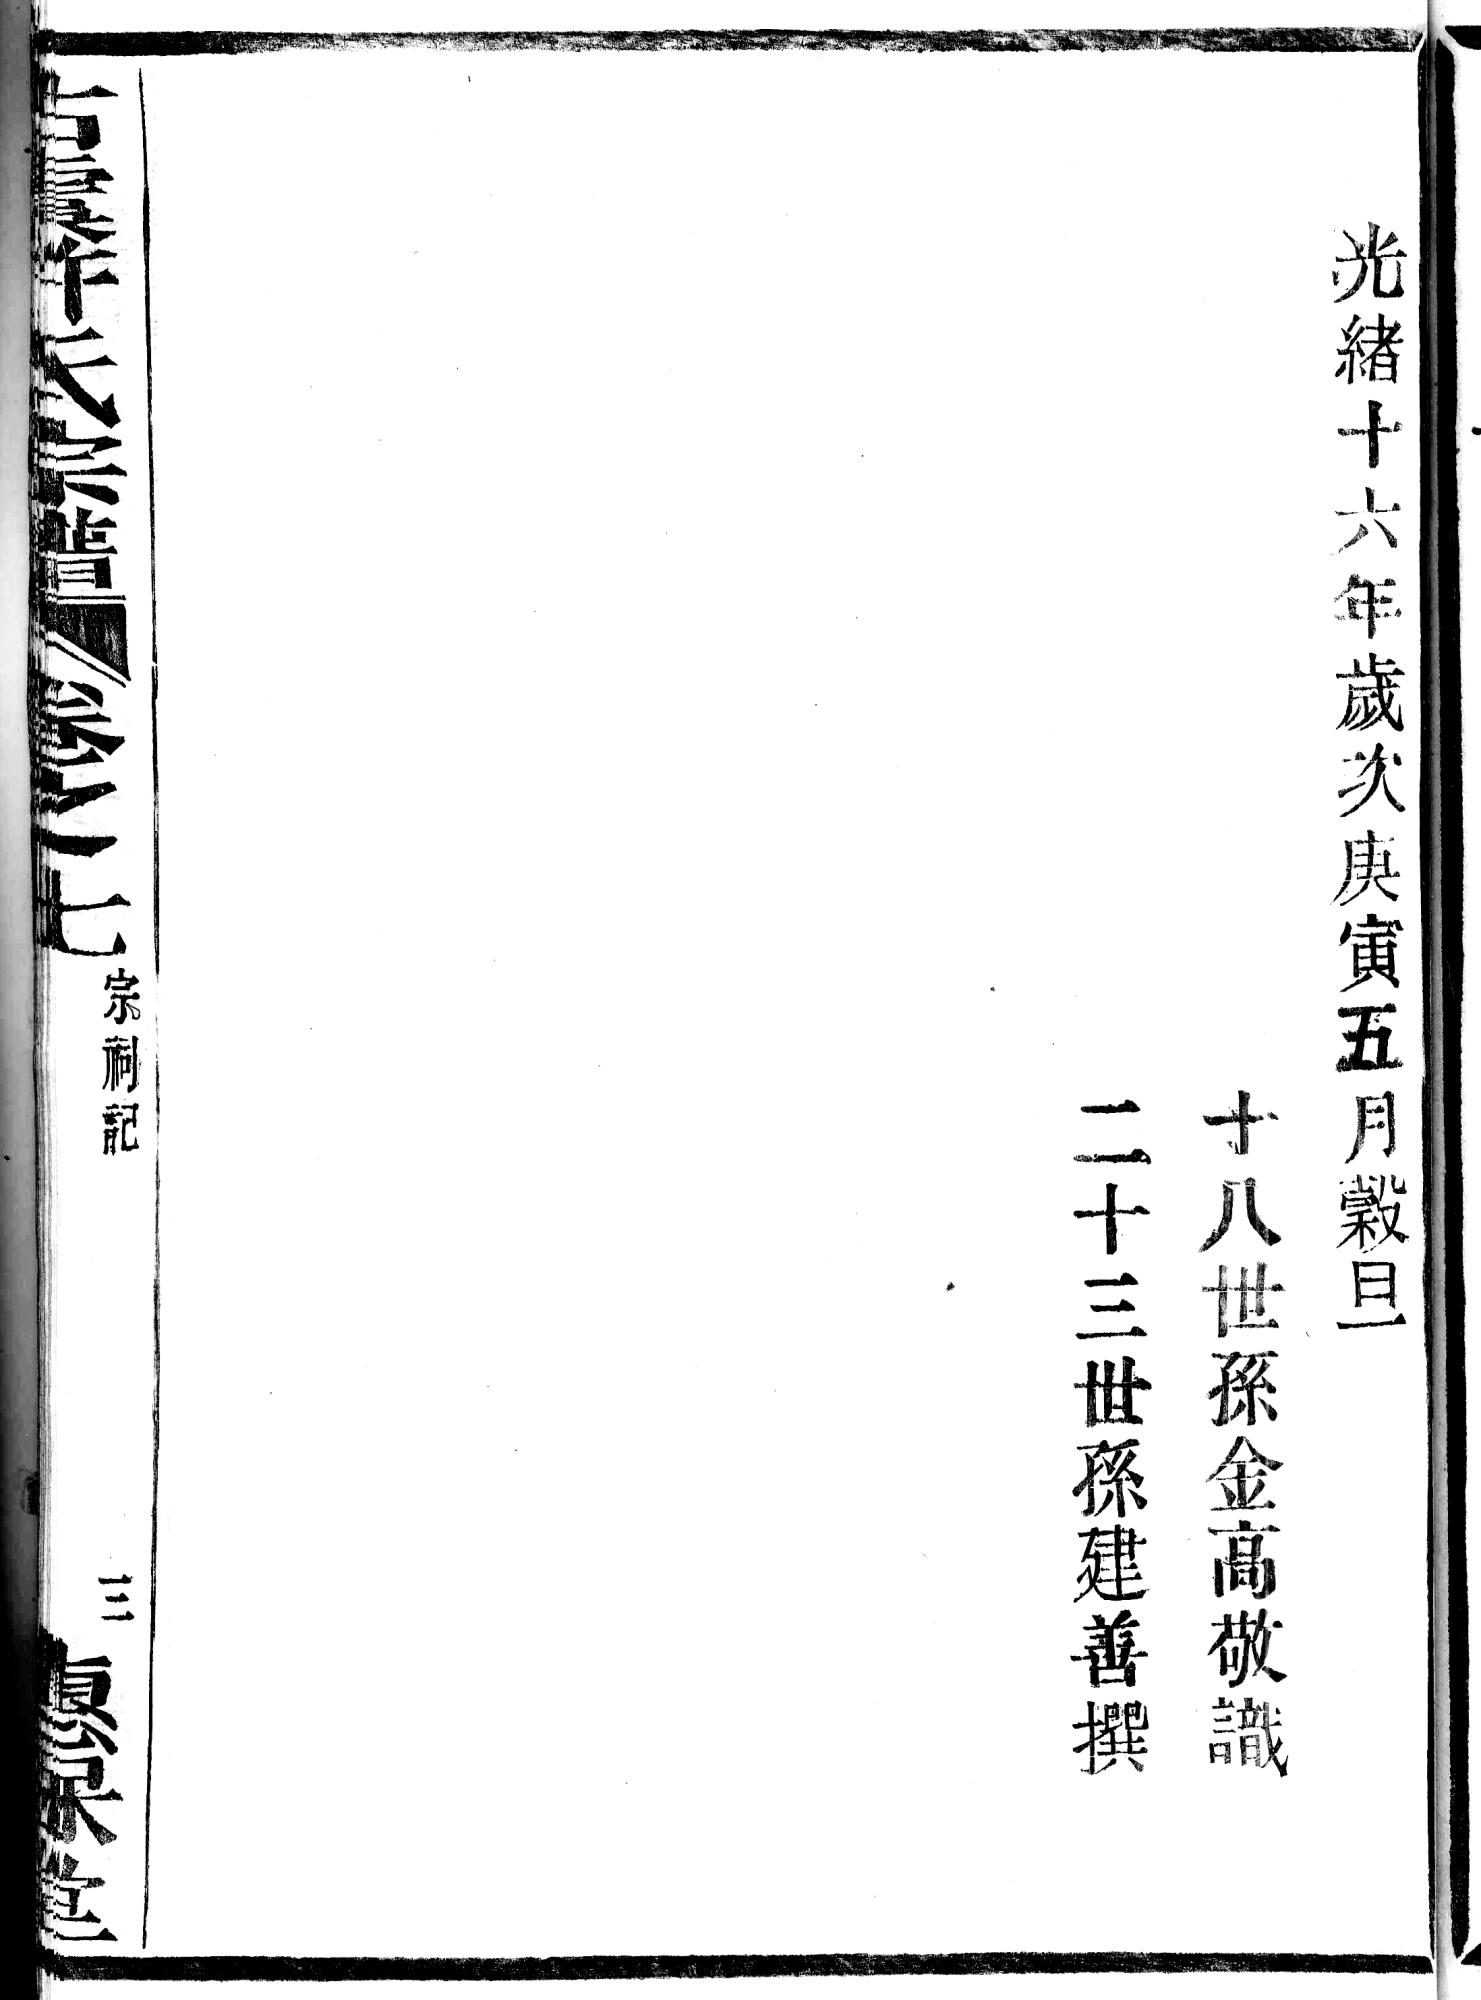 光緒十六年歲次庚寅五月穀旦
十八世孫金高敬識
二十三世孫建善撰
宗譜 卷之七
宗祠記
三
堂